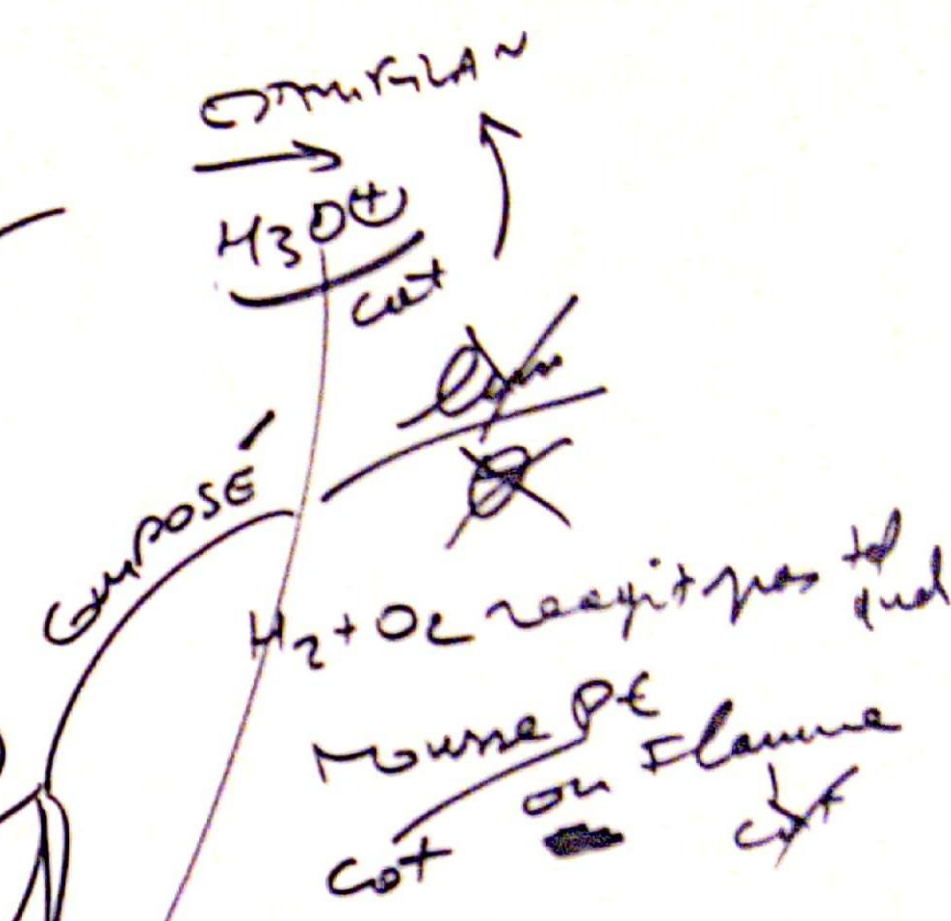 H3O⊕
cat
COMPOSÉ
H2 + O2 reagit pas tel
quel
Mousse Pt
ou Flamme
cat